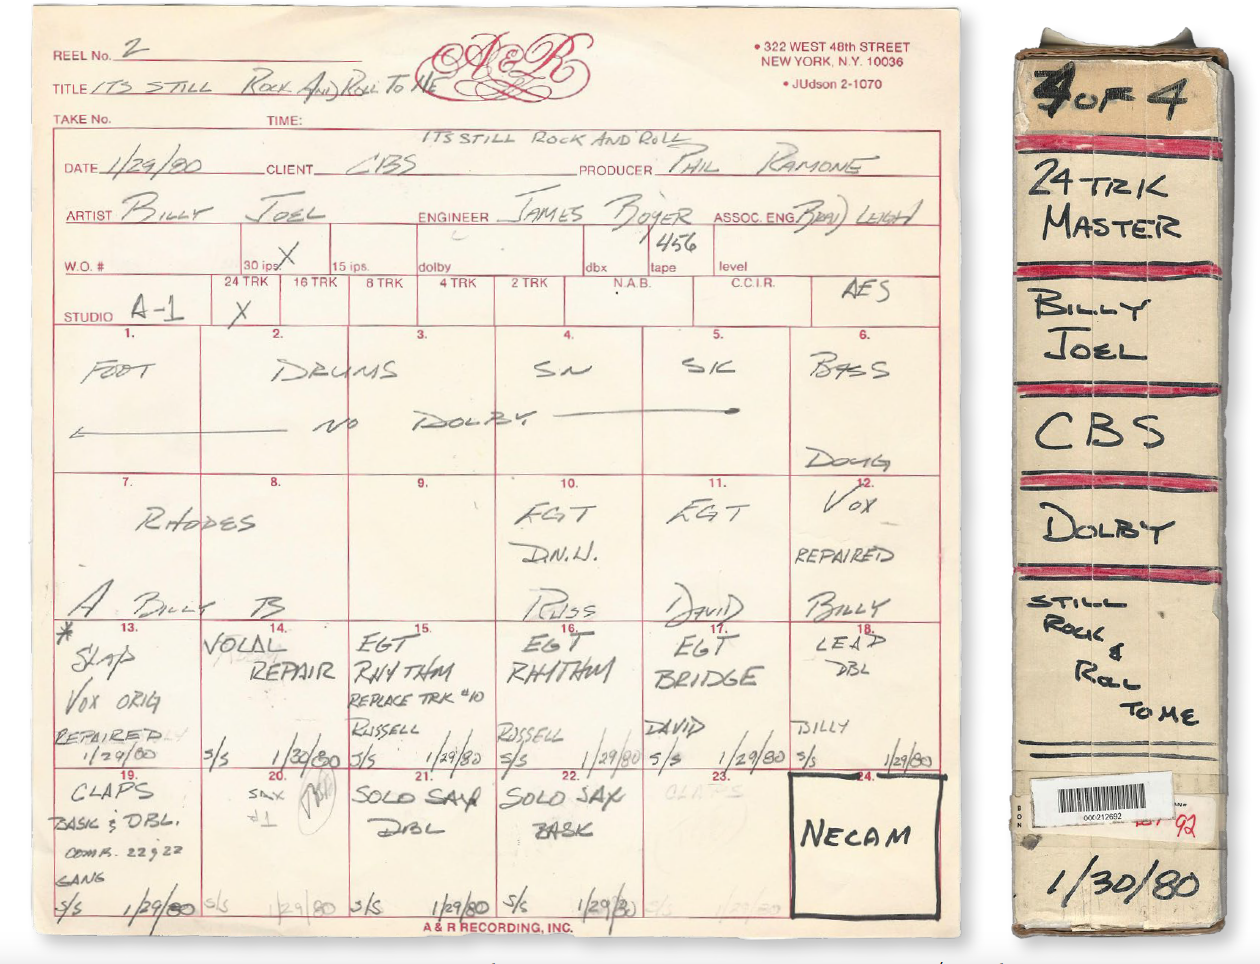 REEL No. 2
A&R
• 322 WEST 48th STREET
NEW YORK, N.Y. 10036
• JUdson 2-1070
TITLE ITS STILL ROCK AND ROLL TO ME
TAKE No. TIME:
ITS STILL ROCK AND ROLL
DATE 1/29/80 CLIENT CBS PRODUCER PHIL RAMONE
ARTIST BILLY JOEL ENGINEER JAMES BOYER ASSOC. ENG. BRAD LEIGH
W.O. # 30 ips. X 15 ips. dolby dbx tape 456 level
STUDIO A-1 24 TRK X 16 TRK 8 TRK 4 TRK 2 TRK N.A.B. C.C.I.R. AES
1. 2. 3. 4. 5. 6.
FOOT DRUMS SN SK BASS
NO DOLBY
DOUG
7. 8. 9. 10. 11. 12.
RHODES EGT EGT VOX
D.N.U. REPAIRED
A BILLY B RUSS DAVID BILLY
* 13. 14. 15. 16. 17. 18.
SLAP VOCAL EGT EGT EGT LEAD
REPAIR RHYTHM RHYTHM BRIDGE DBL
VOX ORIG REPLACE TRK #10
REPAIRED RUSSELL RUSSELL DAVID BILLY
1/29/80 S/S 1/30/80 S/S 1/29/80 S/S 1/29/80 S/S 1/29/80 S/S 1/29/80
19. 20. 21. 22. 23. 24.
CLAPS SAX SOLO SAX SOLO SAX CLAPS
BASK & DBL. #1 DBL BASK NECAM
COMB. 22 & 23
GANG
S/S 1/29/80 S/S 1/29/80 S/S 1/29/80 S/S 1/29/80 S/S 1/29/80
A & R RECORDING, INC.
4 OF 4
24 TRK
MASTER
BILLY
JOEL
CBS
DOLBY
STILL
ROCK
&
ROLL
TO ME
000212692
92
1/30/80